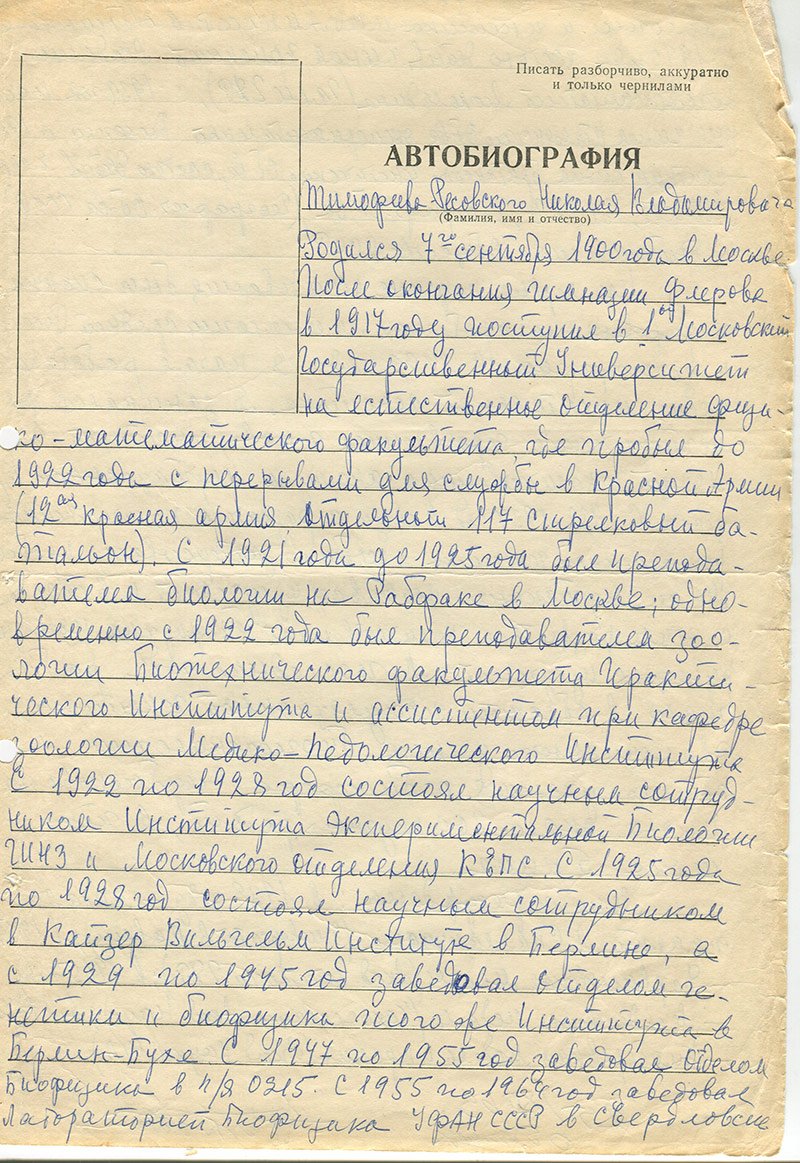 Писать разборчиво, аккуратно
и только чернилами
АВТОБИОГРАФИЯ
Тимофеева-Ресовского Николая Владимировича
(Фамилия, имя и отчество)
Родился 7го сентября 1900 года в Москве
После окончания гимназии Флерова
в 1917 году поступил в 1ый Московский
Государственный Университет
на естественное отделение физи-
ко-математического факультета, где пробыл до
1922 года с перерывами для службы в Красной Армии
(12ая красная армия, Отдельный 117 стрелковый ба-
тальон). С 1921 года до 1925 года был препода-
вателем биологии на Рабфаке в Москве; одно-
временно с 1922 года был преподавателем зоо-
логии Биотехнического факультета Практи-
ческого Института и ассистентом при кафедре
зоологии Медико-педологического Института
С 1922 по 1928 год состоял научным сотруд-
ником Института Экспериментальной Биологии
ГИНЗ и Московского отделения КЕПС. С 1925 года
по 1928 год состоял научным сотрудником
в Кайзер Вильгельм Институте в Берлине, а
с 1929 по 1945 год заведовал отделом ге-
нетики и биофизики того же Института в
Берлин-Бухе. С 1947 по 1955 год заведовал Отделом
Биофизики в п/я 0215. С 1955 по 1964 год заведовал
Лабораторией Биофизики УФАН СССР в Свердловске